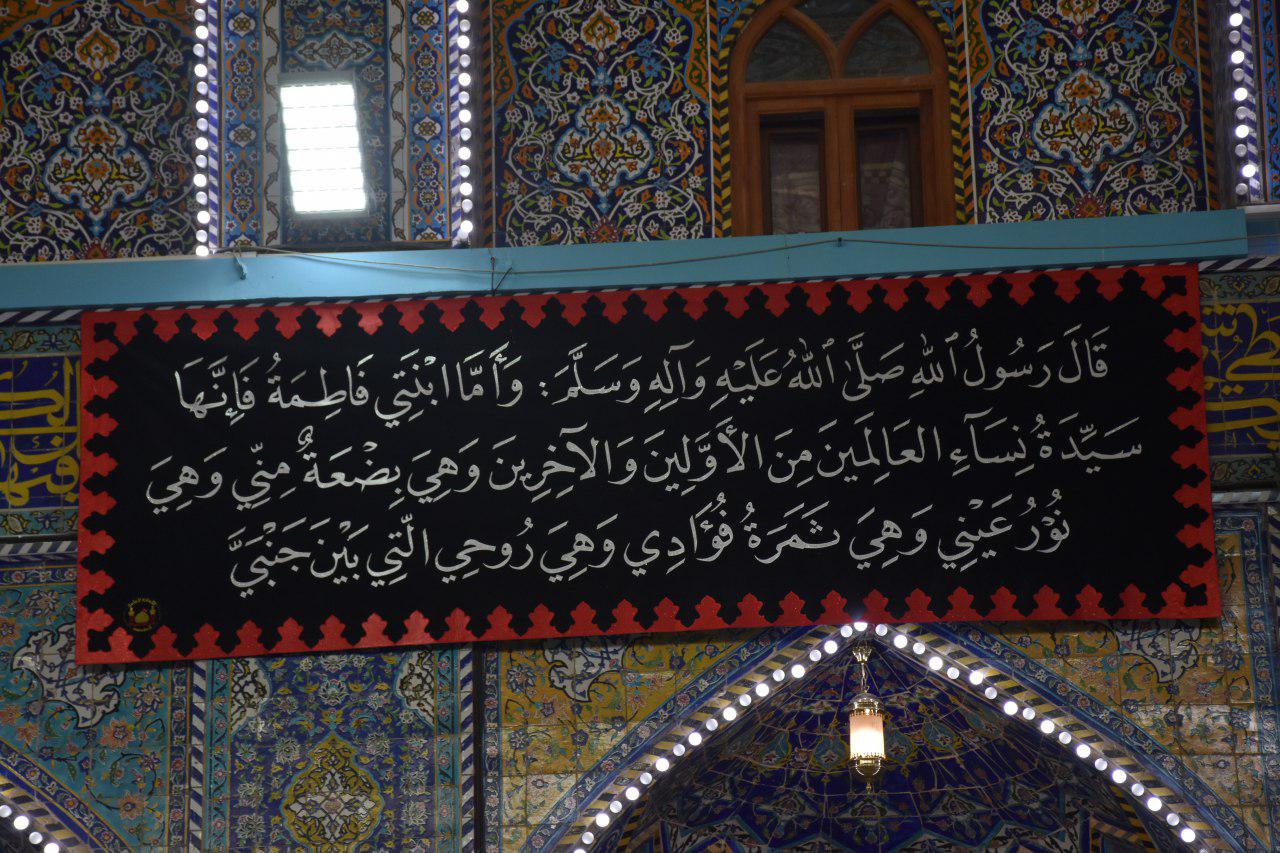 قَالَ رَسُولُ ٱللهِ صَلَّى ٱللهُ عَلَيْهِ وَآلِهِ وَسَلَّمَ: وَأَمَّا ابْنَتِي فَاطِمَةُ فَإِنَّهَا
سَيِّدَةُ نِسَآءِ العَالَمِينَ مِنَ الأَوَّلِينَ وَالآخِرِينَ وَهِيَ بِضْعَةٌ مِنّي وَهِيَ
نُوْرُ عَيْنِي وَهِيَ ثَمَرَةُ فُؤَادِي وَهِيَ رُوحِي الَّتِي بَيْنَ جَنْبَيَّ